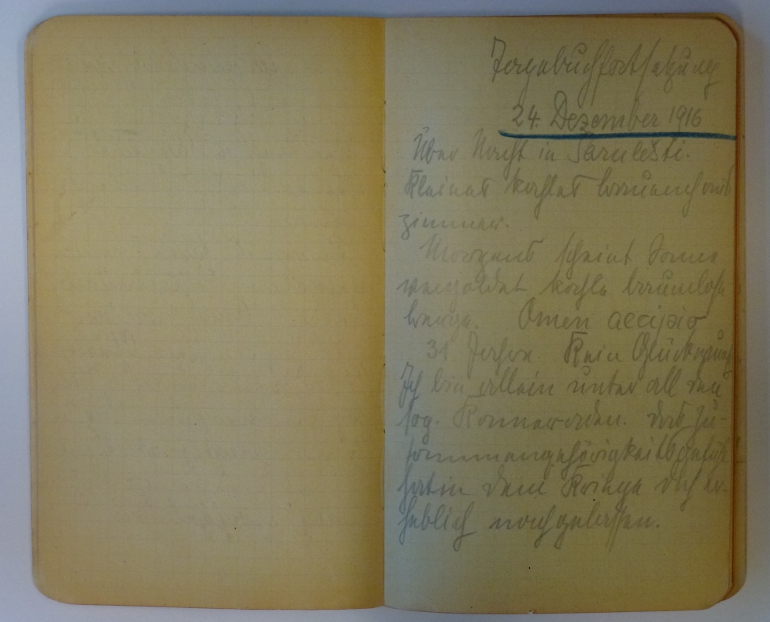 Tagebuchfortsetzung
24. Dezember 1916
Über Nacht in Sarulesti.
Kleines kahles
zimmer.
Morgens scheint Sonne
vergoldet kahle baumlose
berge. Omen accipio
31 Jahre Kein Glückwunsch
Ich bin allein unter all den
sog. Kameraden. Das Zu-
sammengehörigkeitsgefühl
hat in dem Kriege doch er-
heblich nachgelassen.